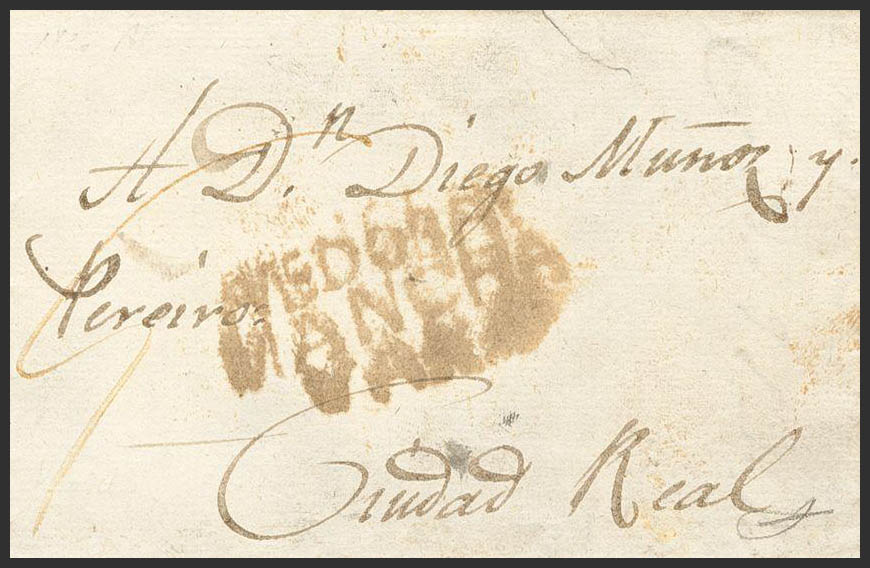 A D.n Diego Muñoz y.
Pereiro.
MANCHA
Ciudad Real